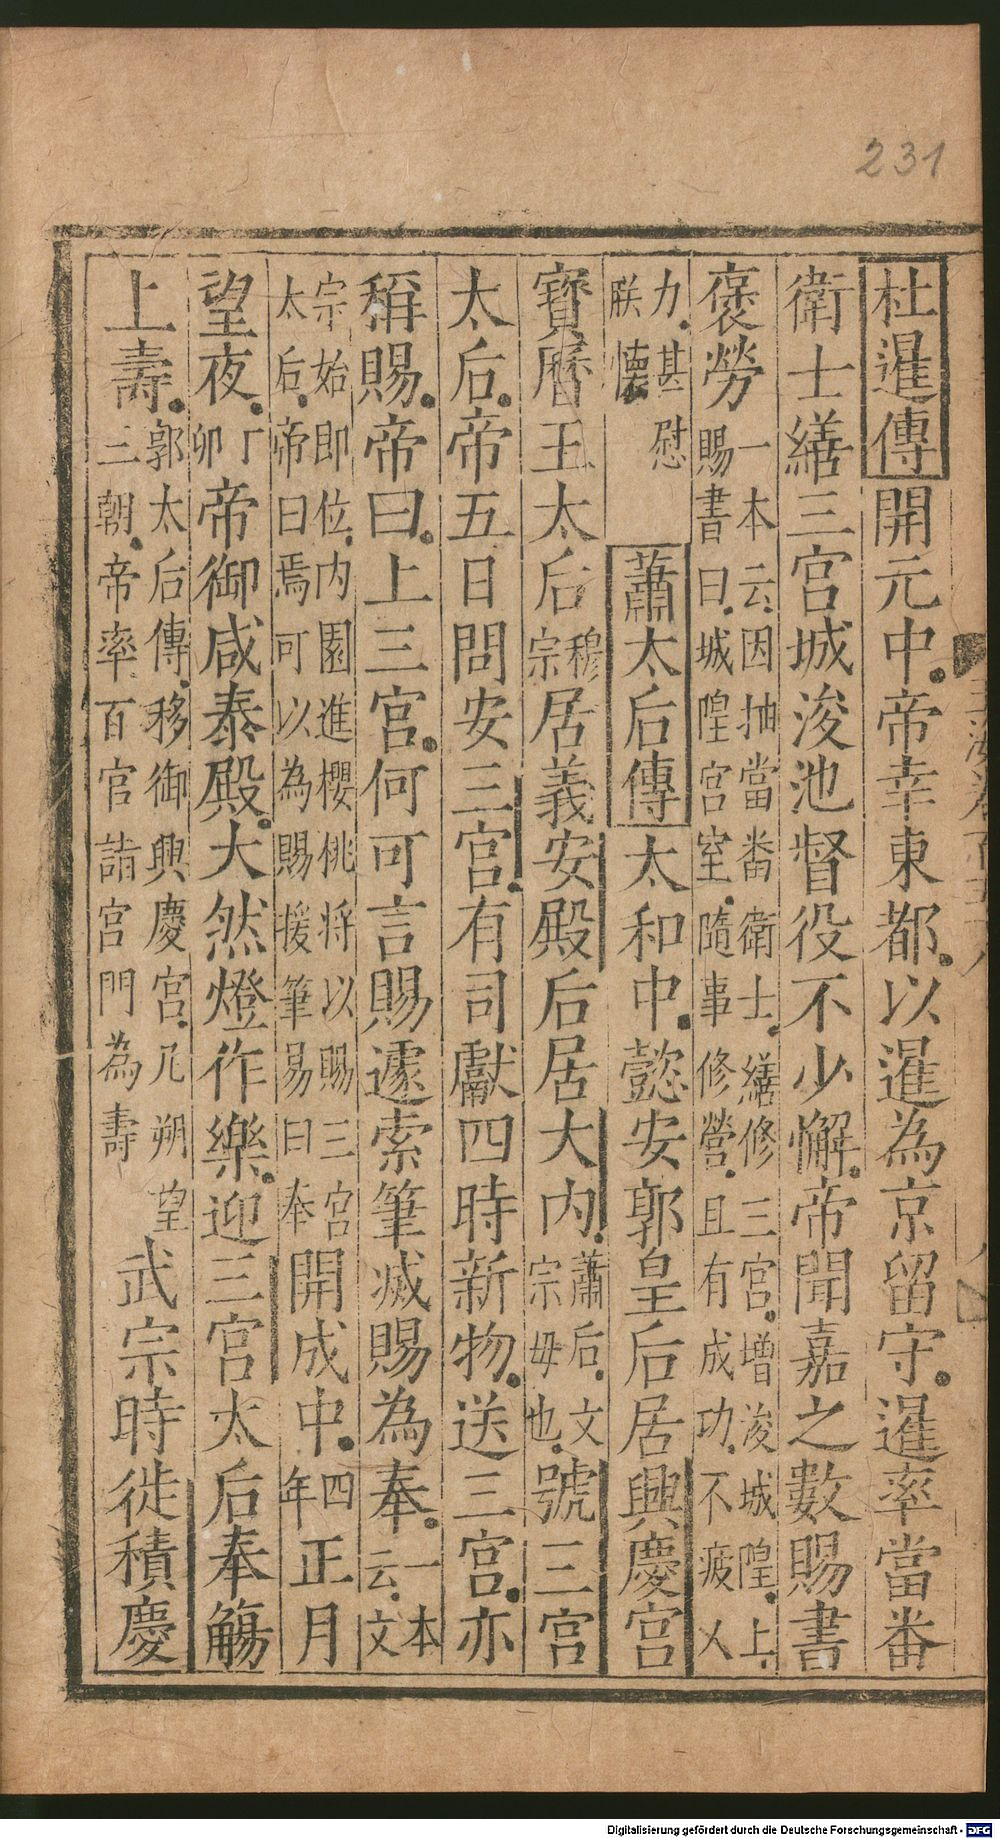 231
杜暹傳開元中帝幸東都以暹為京留守暹率當番
衛士繕三宮城浚池督役不少懈帝聞嘉之數賜書
褒勞一本云因抽當番衛士繕修三宮增浚城隍上賜書曰城隍宮室隨事修營且有成功不疲人
力甚慰朕懷蕭太后傳太和中懿安郭皇后居興慶宮
寶曆王太后穆宗居義安殿后居大内蕭后文宗母也號三宮
太后帝五日問安三宮有司獻四時新物送三宮亦
稱賜帝曰上三宮何可言賜遽索筆滅賜為奉一本云文
宗始即位内園進櫻桃将以賜三宮太后帝曰焉可以為賜援筆易曰奉開成中四年正月
望夜丁卯帝御咸泰殿大然燈作樂迎三宮太后奉觴
上壽郭太后傳移御興慶宮凡朔望三朝帝率百官詣宮門為壽武宗時徙積慶
Digitalisierung gefördert durch die Deutsche Forschungsgemeinschaft - DFG